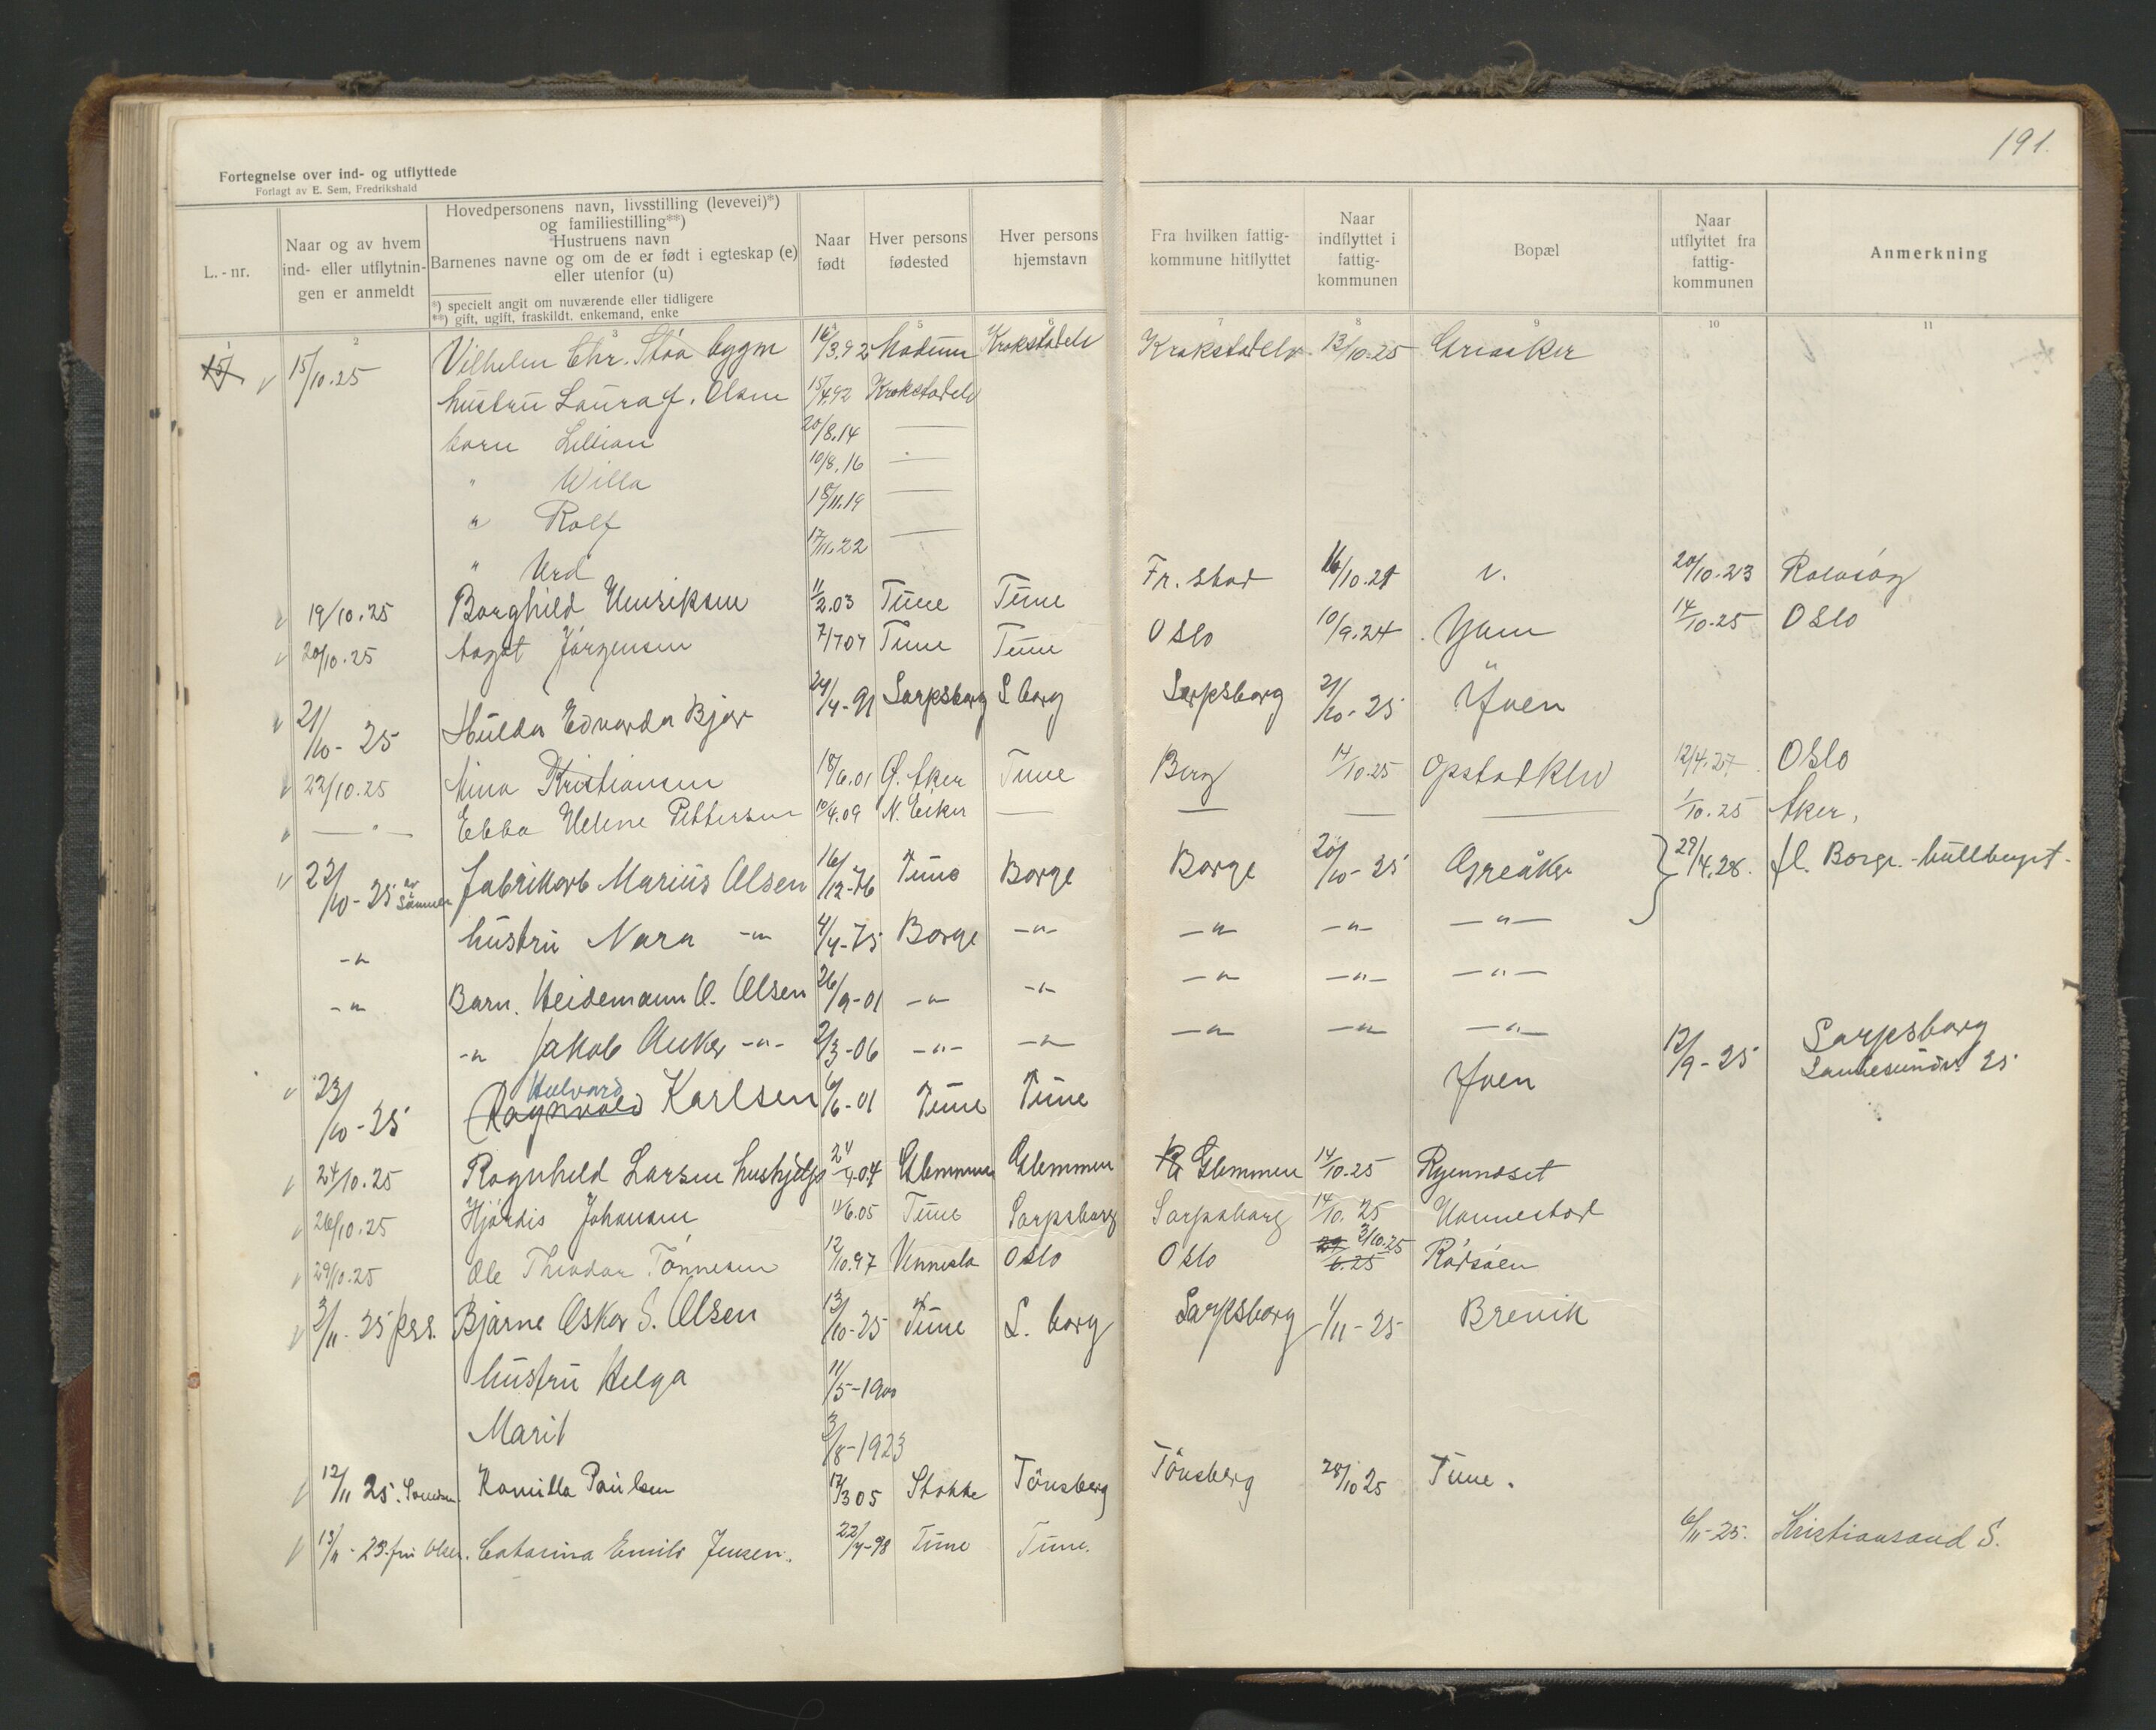 191.
Fortegnelse over ind- og utflyttede
Forlagt av E. Sem, Fredrikshald
L.-nr.
Naar og av hvem ind- eller utflytnin-gen er anmeldt
Hovedpersonens navn, livsstilling (levevei)*)
og familiestilling**)
Hustruens navn
Barnenes navne og om de er født i egteskap (e)
eller utenfor (u)
*) specielt angit om nuværende eller tidligere
**) gift, ugift, fraskildt, enkemand, enke
Naar født
Hver persons fødested
Hver persons hjemstavn
Fra hvilken fattig-kommune hitflyttet
Naar indflyttet i fattig-kommunen
Bopæl
Naar utflyttet fra fattig-kommunen
Anmerkning
2 3 5 6 7 8 9 10 11
15/10.25 Vilhelm Chr. Støa bygm 16/3.92 Modum Krokstadelv Krokstadelv. 13/10.25 Greaaker
hustru Laura f. Olsen 15/4.92 Krokstadelv
barn Lillian 20/8.14 —
" Willa 10/8.16 —
" Rolf 18/11.19 —
" Urd 17/11.22 —
19/10.25 Borghild Henriksen 11/2.03 Tune Tune Fr. stad 16/10.21 v. 20/10.23 Rolvsøy
20/10.25 Aagot Jørgensen 7/1 07 Tune Tune Oslo 10/9.24 Yven 14/10.25 Oslo
21/10-25 Hulda Edvarda Bjør 24/4-91 Sarpsborg S borg Sarpsborg 21/10-25 Yven
22/10.25 Mina Kristiansen 18/6.01 Ø. Aker Tune Berg 14/10.25 Opstadklev 12/4.27 Oslo
— " — Ebba Helene Pettersen 10/4.09 N. Eiker — — — — 1/10.25 Aker.
22/10-25 av sønnen fabrikarb Marius Olsen 16/12-76 Tune Borge Borge 20/10-25 Greåker } 29/4.28. fl. Borge.
-"- hustru Nara -"- 4/4-75 Borge -"- -"- -"- -"-
-"- Barn. Heidemann O. Olsen 26/9-01 -"- -"- -"- -"- -"-
-"- Jakob Anker -"- 2/3-06 -"- -"- -"- -"- -"-
23/10-25 Ragnvald Halvard Karlsen 6/6-01 Tune Tune Yven 12/9-25 Sarpsborg
Sannesundsv. 25
24/10.25 Ragnhild Larsen hushjelp 24/9.04 Glemmen Glemmen Glemmen 14/10.25 Ryenndset
26/10.25 Hjørdis Johansen 11/6.05 Tune Sarpsborg Sarpsborg 14/10.25 Hannestad
29/10.25 Ole Theodor Tønnesen 12/10.97 Vennesla Oslo Oslo 29/6.25 3/10.25 Rådsåen
3/11-25 pss. Bjarne Oskar S. Olsen 13/10-25 Tune S. borg Sarpsborg 1/11-25 Brevik
hustru Helga 11/5-1900
Marit 3/8-1923
12/11 25. Kamilla Paulsen 17/3 05 Stokke Tønsberg Tønsberg 28/10 25 Tune.
13/11-25. fru Olsen. Catarina Emilie Jensen. 22/4-98 Tune Tune. 6/11-25. Kristiansand S.